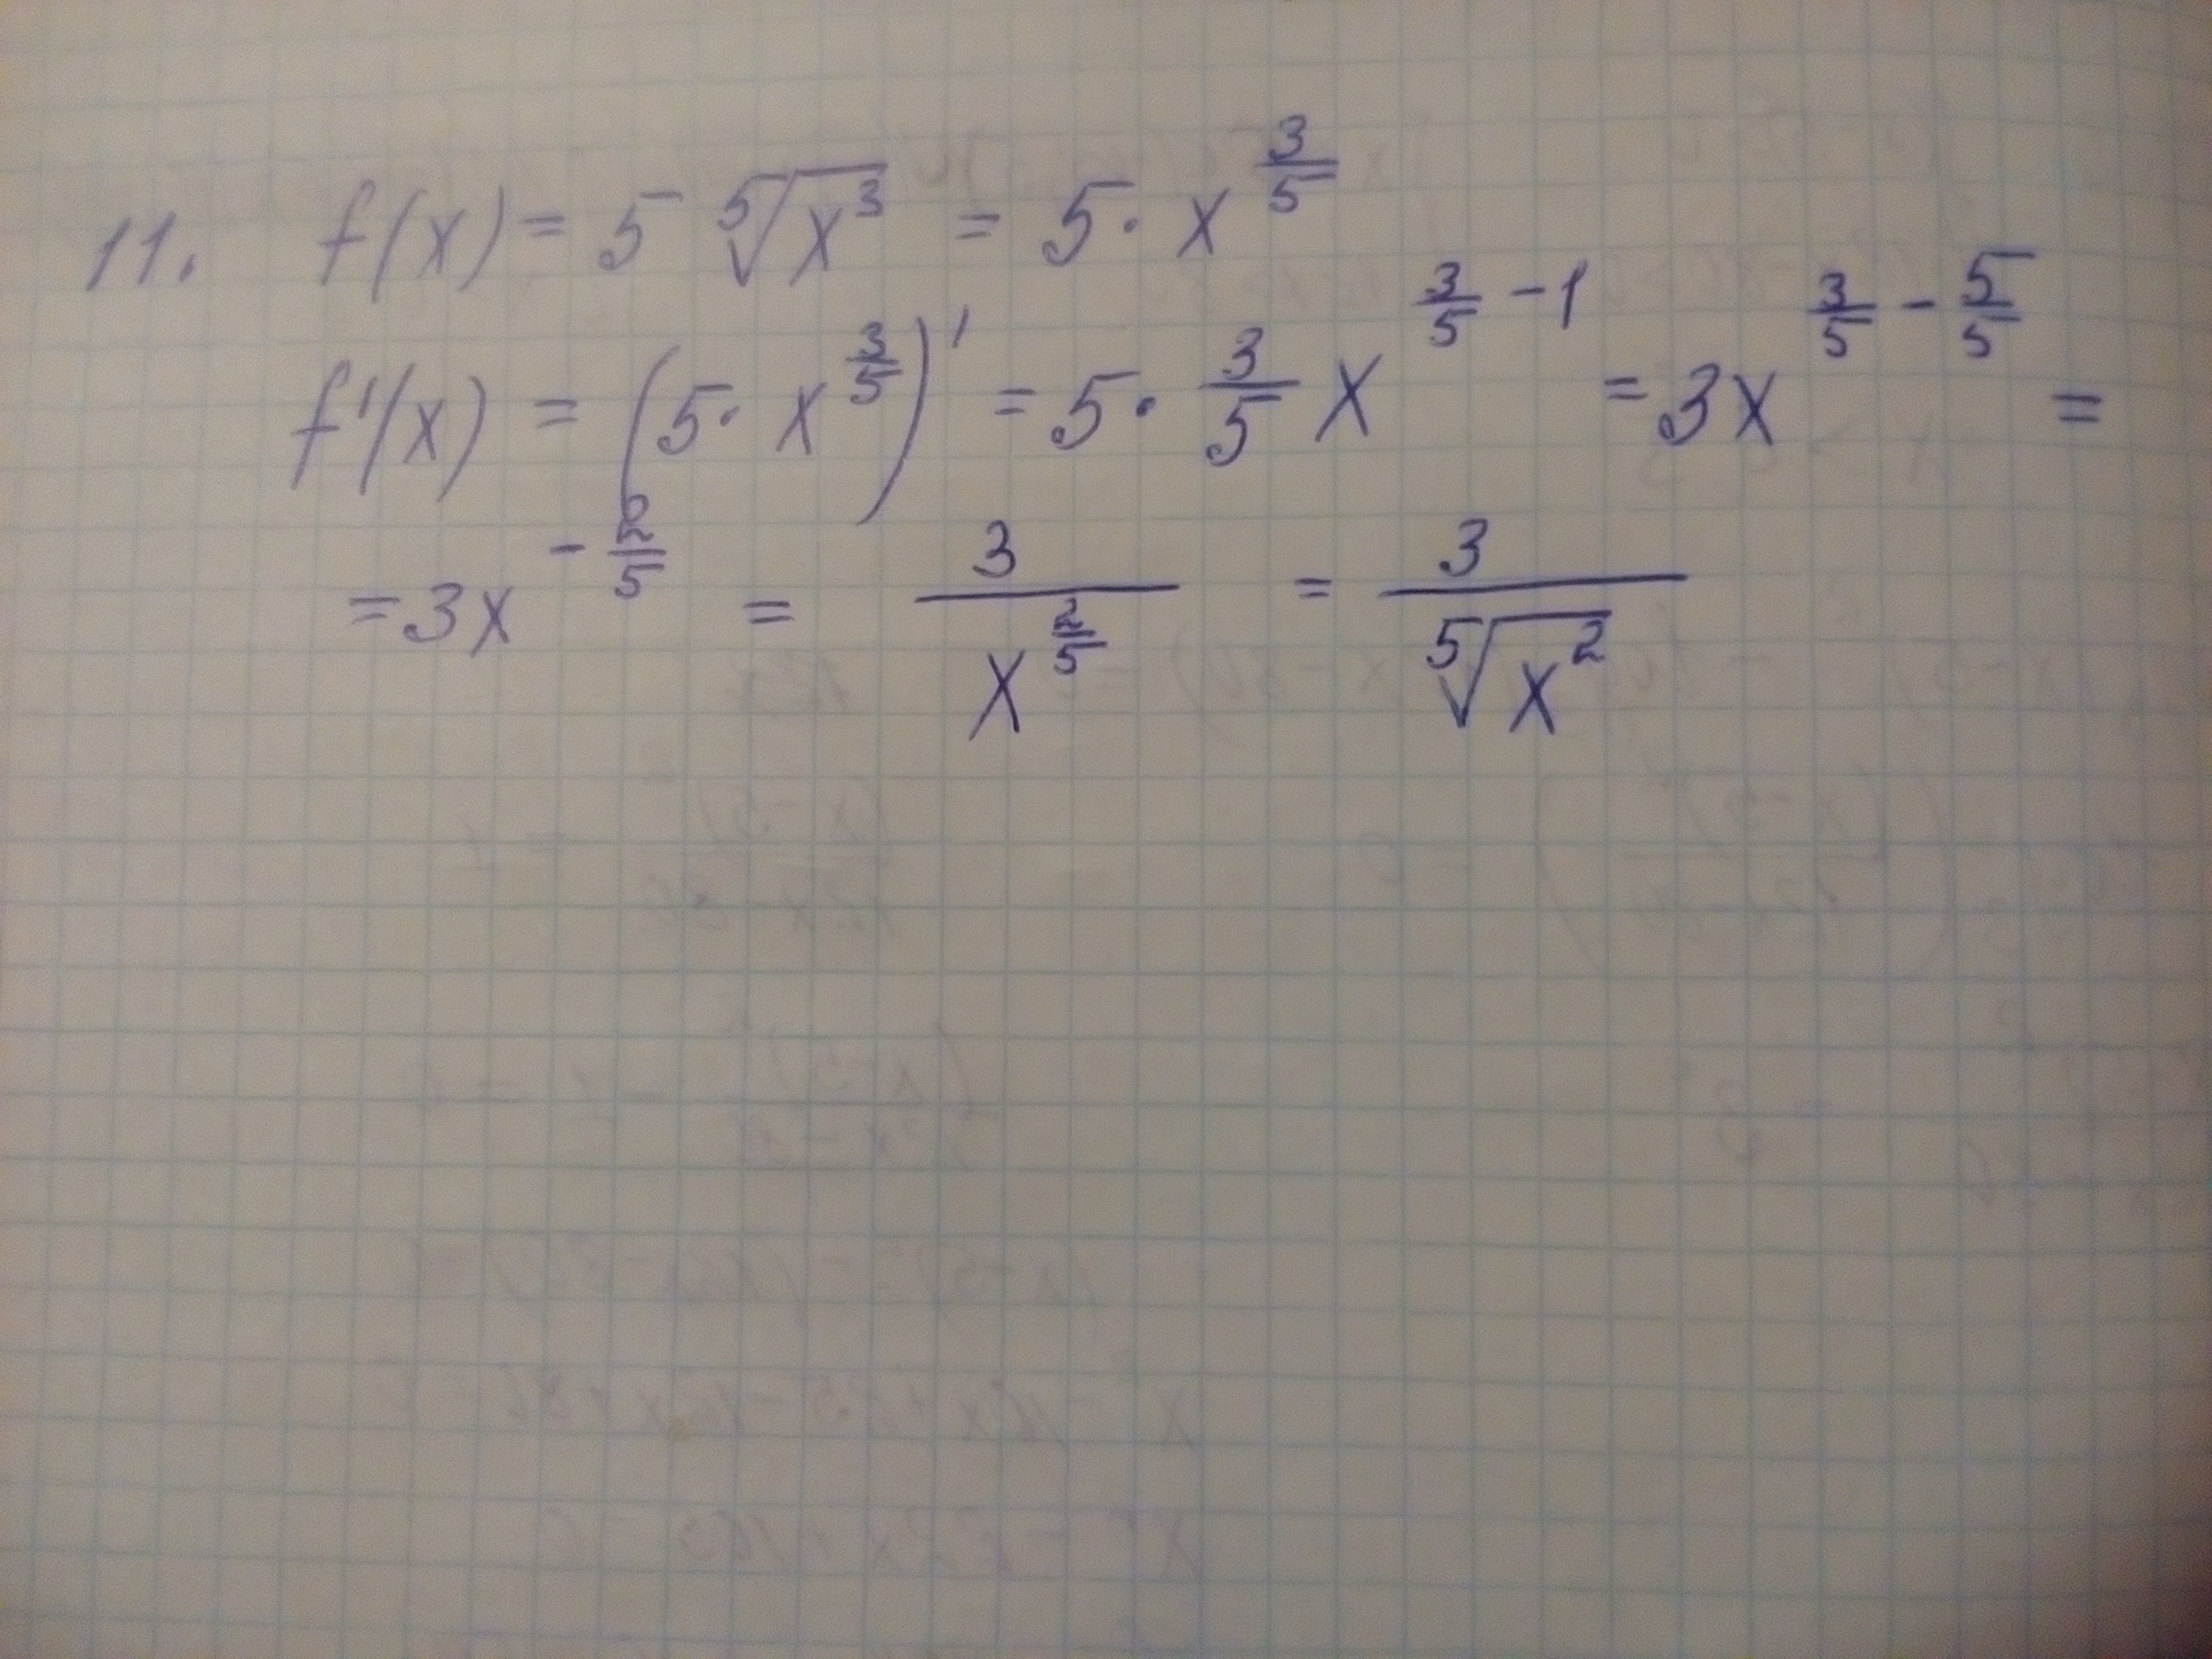 11. f(x) = 5 ⁵√x³ = 5 · x^(3/5)
f'(x) = (5 · x^(3/5))' = 5 · 3/5 x^(3/5 - 1) = 3x^(3/5 - 5/5) =
= 3x^(-2/5) = 3/x^(2/5) = 3/⁵√x²